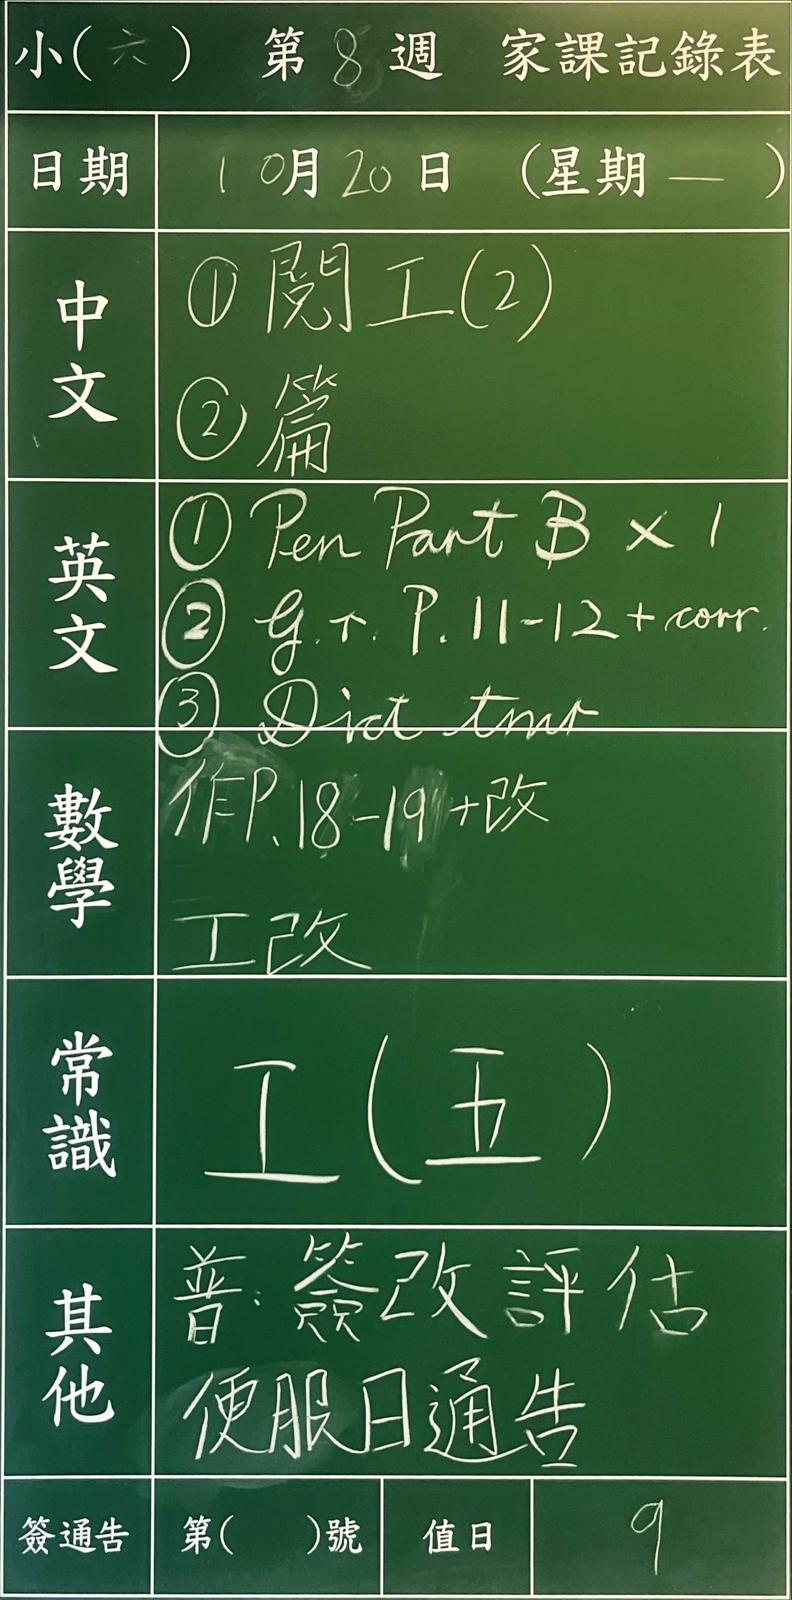 小(六) 第8週 家課記錄表
日期 10月20日 (星期一)
中文
① 閱工(2)
② 篇
英文
① Pen Part B × 1
② G.T. P.11-12 + corr.
③ Dict tmr
數學
作P.18-19+改
工改
常識
工(五)
其他
普:簽改評估
便服日通告
簽通告 第( )號 值日 9